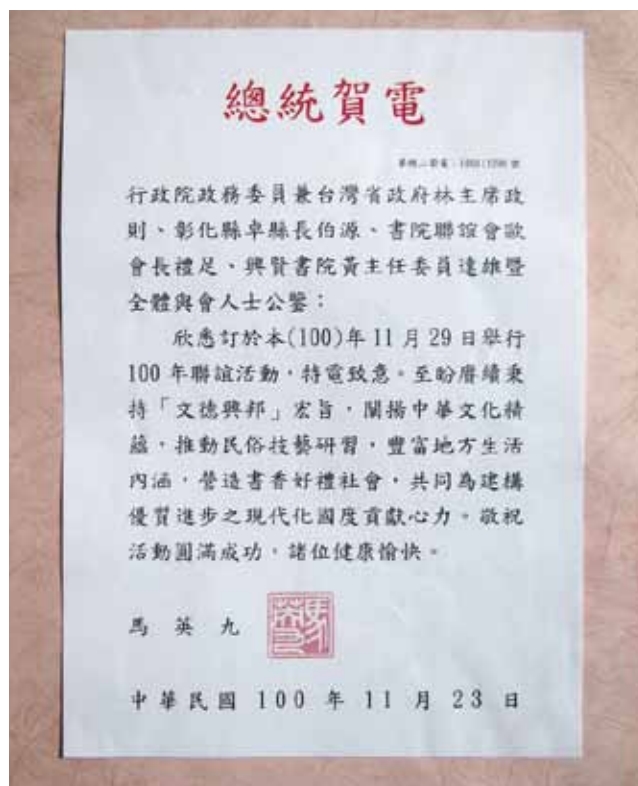 總統賀電
行政院政務委員兼台灣省政府林主席政
則、彰化縣卓縣長伯源、書院聯誼會歐
會長禮足、興賢書院黃主任委員達雄暨
全體與會人士公鑒：
欣悉訂於本(100)年11月29日舉行
100年聯誼活動，特電致意。至盼賡續秉
持「文德興邦」宏旨，闡揚中華文化精
蘊，推動民俗技藝研習，豐富地方生活
內涵，營造書香好禮社會，共同為建構
優質進步之現代化國度貢獻心力。敬祝
活動圓滿成功，諸位健康愉快。
馬英九
中華民國100年11月23日